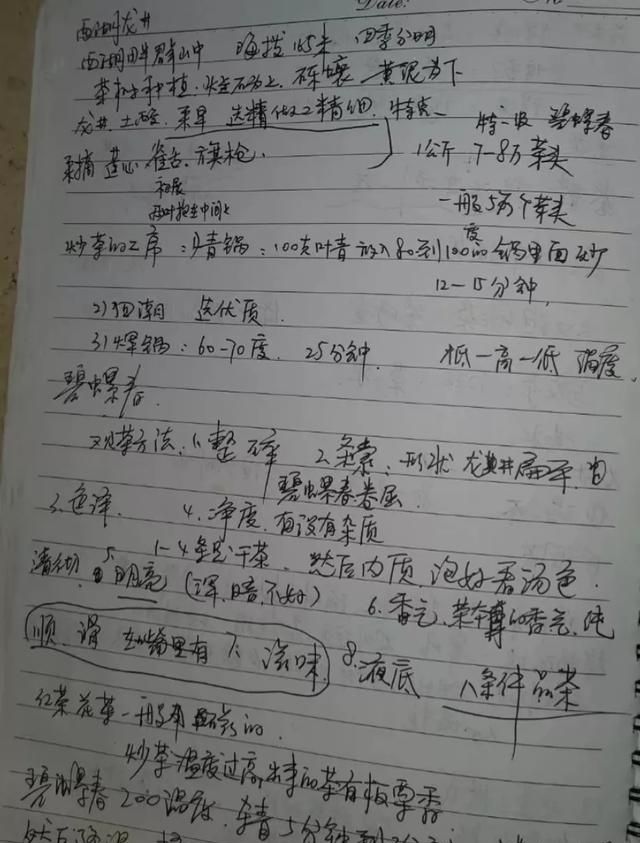 Date:
西湖龙井
西湖四周群山中 海拔165米 四季分明
茶籽种植. 烂石为上. 砾壤 黄泥为下
龙井. 采早 选精做工精细. 特点
特一级 碧螺春
1公斤 7-8万茶头
采摘 莲心. 雀舌. 旗枪.
初展
一般5万个茶头
炒茶的工序: 青锅: 100克叶青放入80到100度的锅里面炒
12-15分钟.
2)回潮 选优质.
3)辉锅: 60-70度. 25分钟. 低一高一低 温度.
碧螺春
观茶方法. 1.整碎 2.条索: 形状 龙井扁平.
碧螺春卷屈
3.色泽. 4.净度. 有没有杂质
1-4条是干茶. 然后内质 泡好看汤色.
清彻. 5. 明亮 (浑. 暗.不好) 6.香气. 茶本身的香气. 纯
顺. 滑 在嘴里有 7. 滋味 8.液底 八条件品茶
红茶花茶一般有
炒茶温度过高,出来的茶有板栗香
碧螺春 200温度. 杀青5分钟到